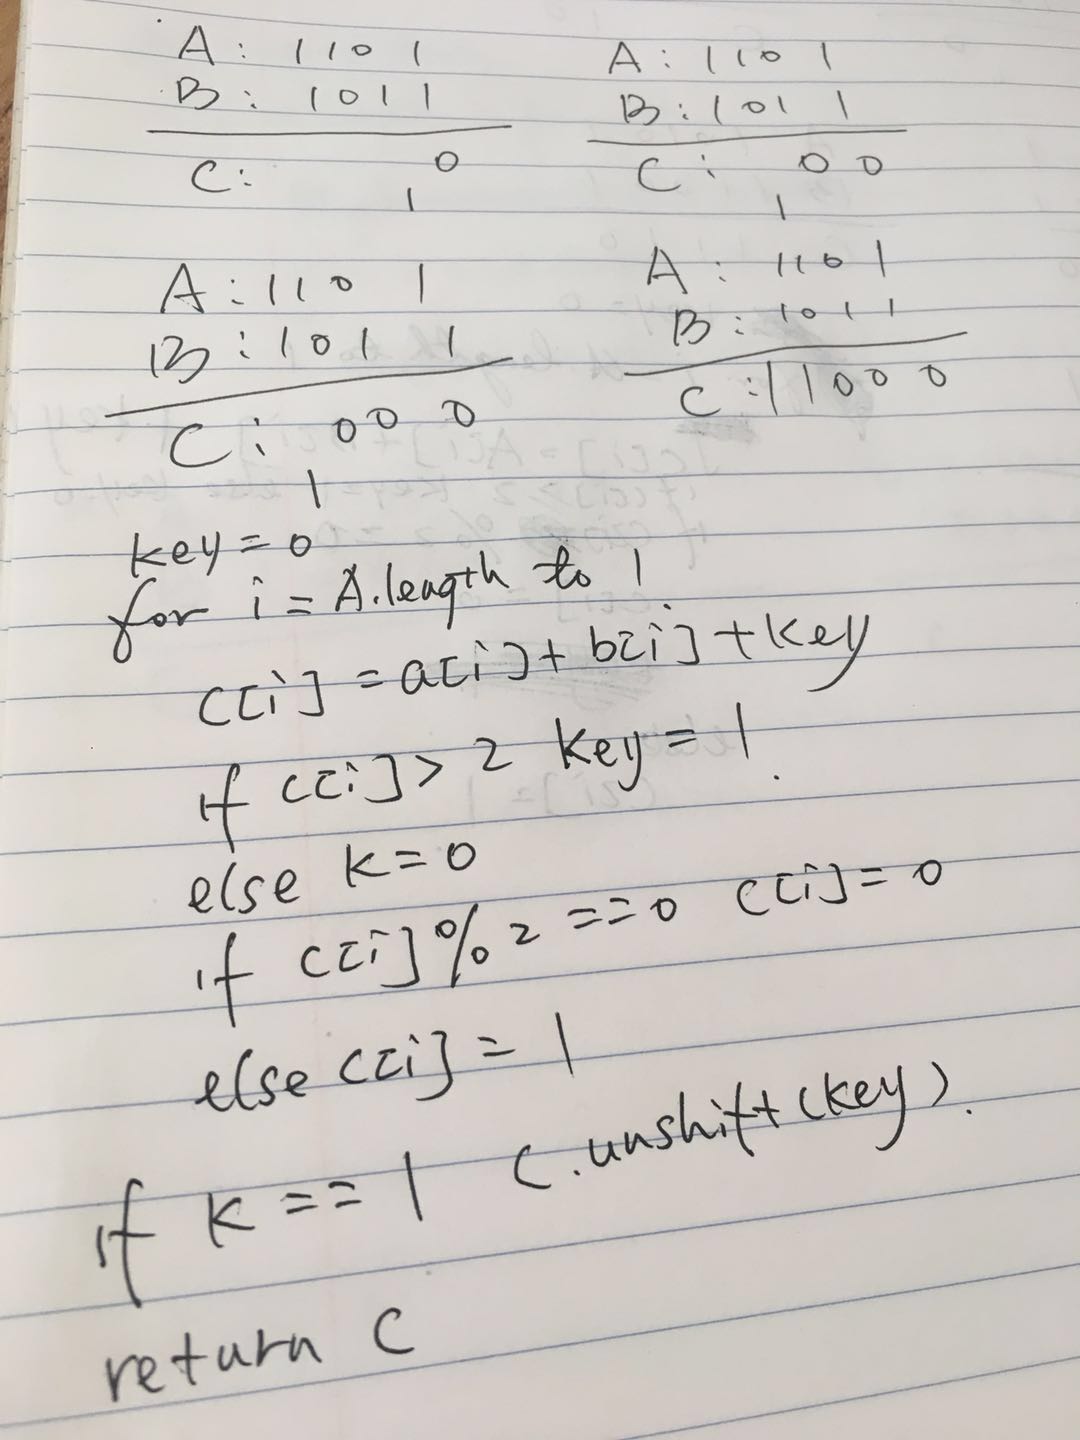 A: 1101
B: 1011
C: 0
1
A: 1101
B: 1011
C: 00
1
A: 1101
B: 1011
C: 000
1
A: 1101
B: 1011
C: 11000
key=0
for i = A.length to 1
C[i] = a[i] + b[i] + key
if C[i] > 2 key = 1.
else k=0
if C[i] % 2 == 0 C[i] = 0
else C[i] = 1
if k == 1 C.unshift(key).
return C